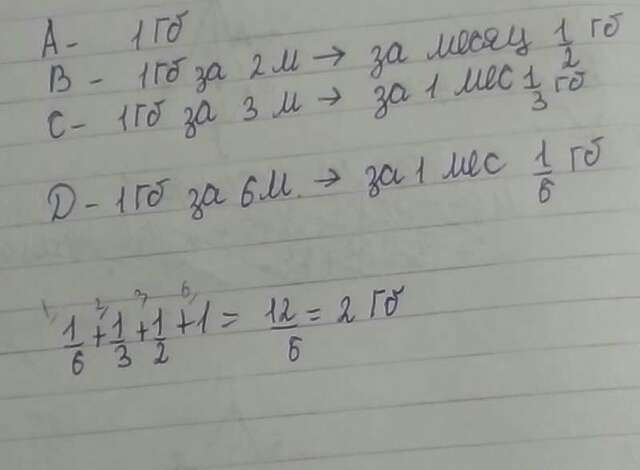 А - 1 Гб
В - 1Гб за 2 м → за месяц 1/2 Гб
С - 1Гб за 3 м → за 1 мес 1/3 Гб
D - 1Гб за 6 м. → за 1 мес 1/6 Гб
1 2 3 6
1/6 + 1/3 + 1/2 + 1 = 12/6 = 2 Гб